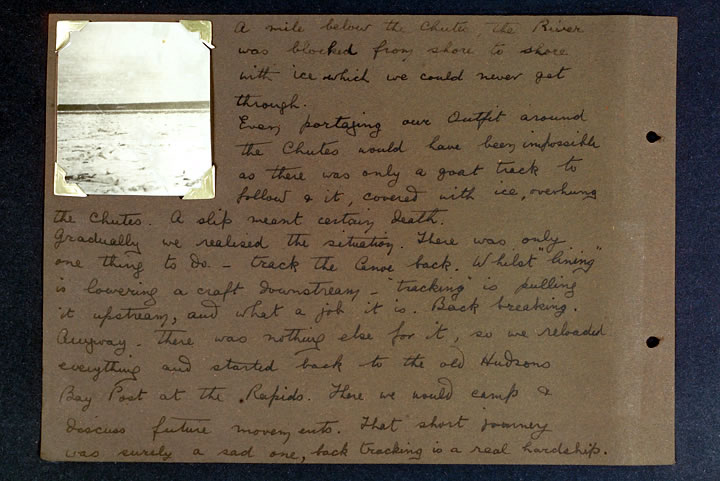 A mile below the Chutes, the River
was blocked from shore to shore
with ice which we could never get
through.
Even portaging our Outfit around
the Chutes would have been impossible
as there was only a goat track to
follow & it, covered with ice, overhung
the Chutes. A slip meant certain death.
Gradually we realised the situation. There was only
one thing to do. - track the Canoe back. Whilst "lining"
is lowering a craft downstream - "tracking" is pulling
it upstream, and what a job it is. Back breaking.
Anyway - there was nothing else for it, so we reloaded
everything and started back to the old Hudsons
Bay Post at the Rapids. Here we would camp &
discuss future movements. That short journey
was surely a sad one, back tracking is a real hardship.